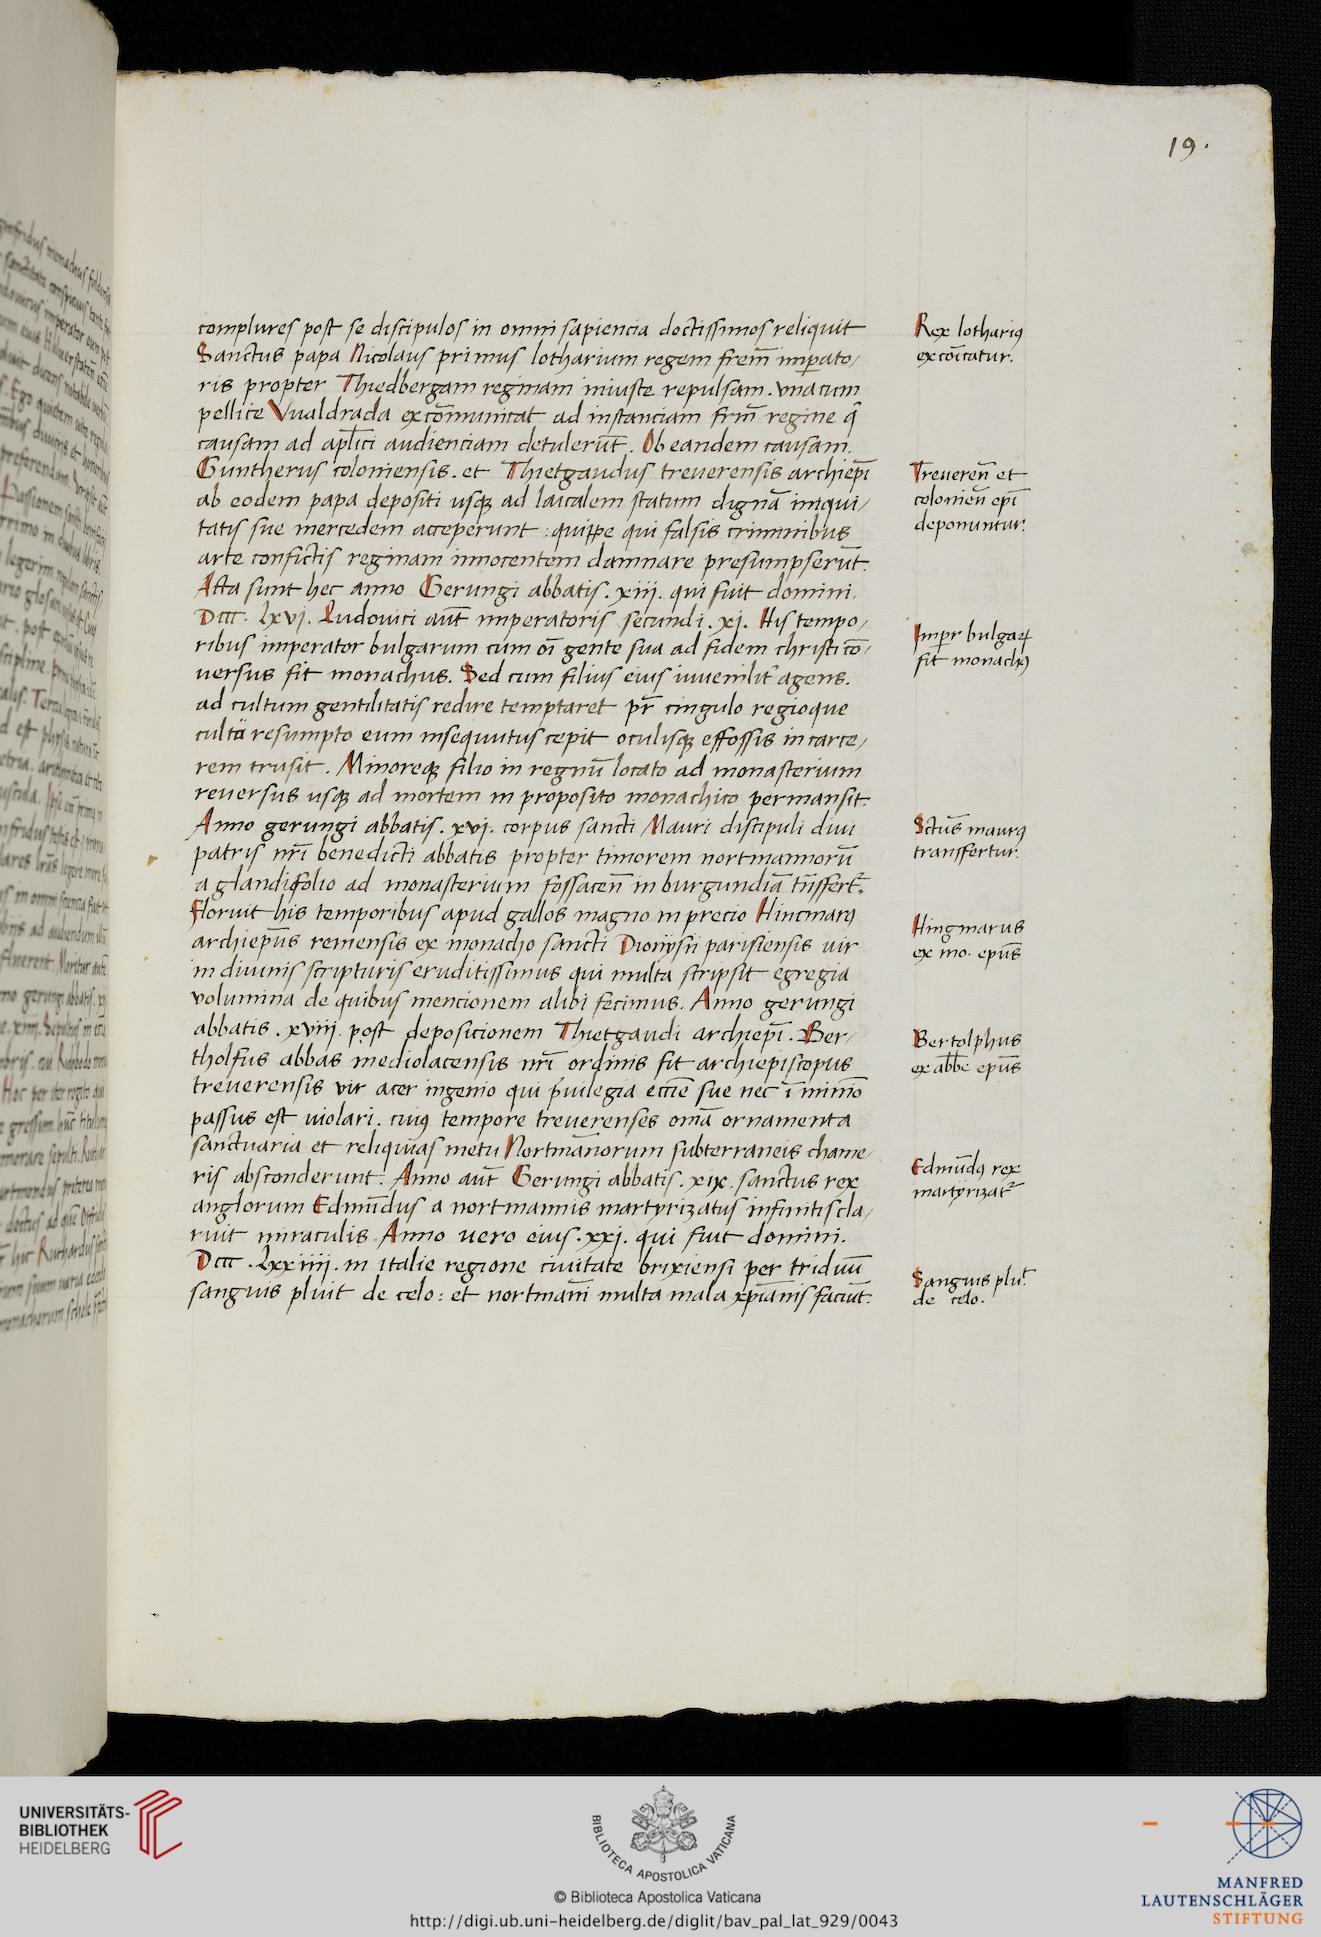 19.
complures post se discipulos in omni sapiencia doctissimos reliquit
Sanctus papa Nicolaus primus lotharium regem frem̅ imperato/
ris propter Thiedbergam reginam iniuste repulsam. vna cum
pellice Vualdrada exco̅municat ad instanciam frm̅ regine q̅
causam ad apl̅ici audienciam detuleru̅t. Ob eandem causam.
Guntherus coloniensis. et Thietgaudus treuerensis archiep̅i
ab eodem papa depositi vsqꝫ ad laicalem statum digna̅ iniqui/
tatis sue mercedem acceperunt : quippe qui falsis criminibus
arte confictis reginam innocentem damnare presumpseru̅t.
Acta sunt hec anno Gerungi abbatis. xiij. qui fuit domini.
Dccc. lxvj. Ludouici aut̅ imperatoris secundi. xj. His tempo/
ribus imperator bulgarum cum oi̅ gente sua ad fidem christi co̅/
uersus fit monachus. Sed cum filius eius iuuenilit᷑ agens.
ad cultum gentilitatis redire temptaret pr̅ cingulo regioque
cultu resumpto eum insequutus cepit oculisqꝫ effossis in carce/
rem trusit. Minoreqꝫ filio in regnu̅ locato ad monasterium
reuersus vsqꝫ ad mortem in proposito monachico permansit.
Anno gerungi abbatis. xvj. corpus sancti Mauri discipuli diui
patris nr̅i benedicti abbatis propter timorem nortmannoru̅
a glandifolio ad monasterium fossacen̅ in burgundia̅ tn̅sfert᷑.
Floruit his temporibus apud gallos magno in precio Hincmarꝰ
archiep̅us remensis ex monacho sancti Dionysii parisiensis vir
in diuinis scripturis eruditissimus qui multa scripsit egregia
volumina de quibus mencionem alibi fecimus. Anno gerungi
abbatis. xviij. post deposicionem Thietgaudi archiep̅i. Ber/
tholfus abbas mediolacensis nr̅i ordinis fit archiepiscopus
treuerensis vir acer ingenio qui p̅uilegia ecc̅ie sue nec i̅ minimo
passus est uiolari. cuiꝰ tempore treuerenses oma̅ ornamenta
sanctuaria et reliquias metu Nortma̅norum subterraneis chame/
ris absconderunt. Anno aut̅ Gerungi abbatis. xix. sanctus rex
anglorum Edmu̅dus a nortmannis martyrizatus infinitis cla/
ruit miraculis Anno uero eius. xxj. qui fuit domini.
Dccc. lxxiiij. in italie regione ciuitate brixiensi per triduu̅
sanguis pluit de celo: et nortman̅i multa mala xp̅ianis faciu̅t.
Rex lothariꝰ
exco̅icatur.
Treueren̅ et
colonien̅ ep̅i
deponuntur.
Imper bulgaꝝ
fit monachꝰ
Sctus̅ maurꝰ
transffertur.
Hingmarus
ex mo. epus̅
Bertolphus
ex abbe̅ epus̅
Edmu̅dꝰ rex
martyrizat᷑
Sanguis pluit
de celo.
UNIVERSITÄTS-
BIBLIOTHEK
HEIDELBERG
BIBLIOTECA APOSTOLICA VATICANA
© Biblioteca Apostolica Vaticana
http://digi.ub.uni-heidelberg.de/diglit/bav_pal_lat_929/0043
MANFRED
LAUTENSCHLÄGER
STIFTUNG